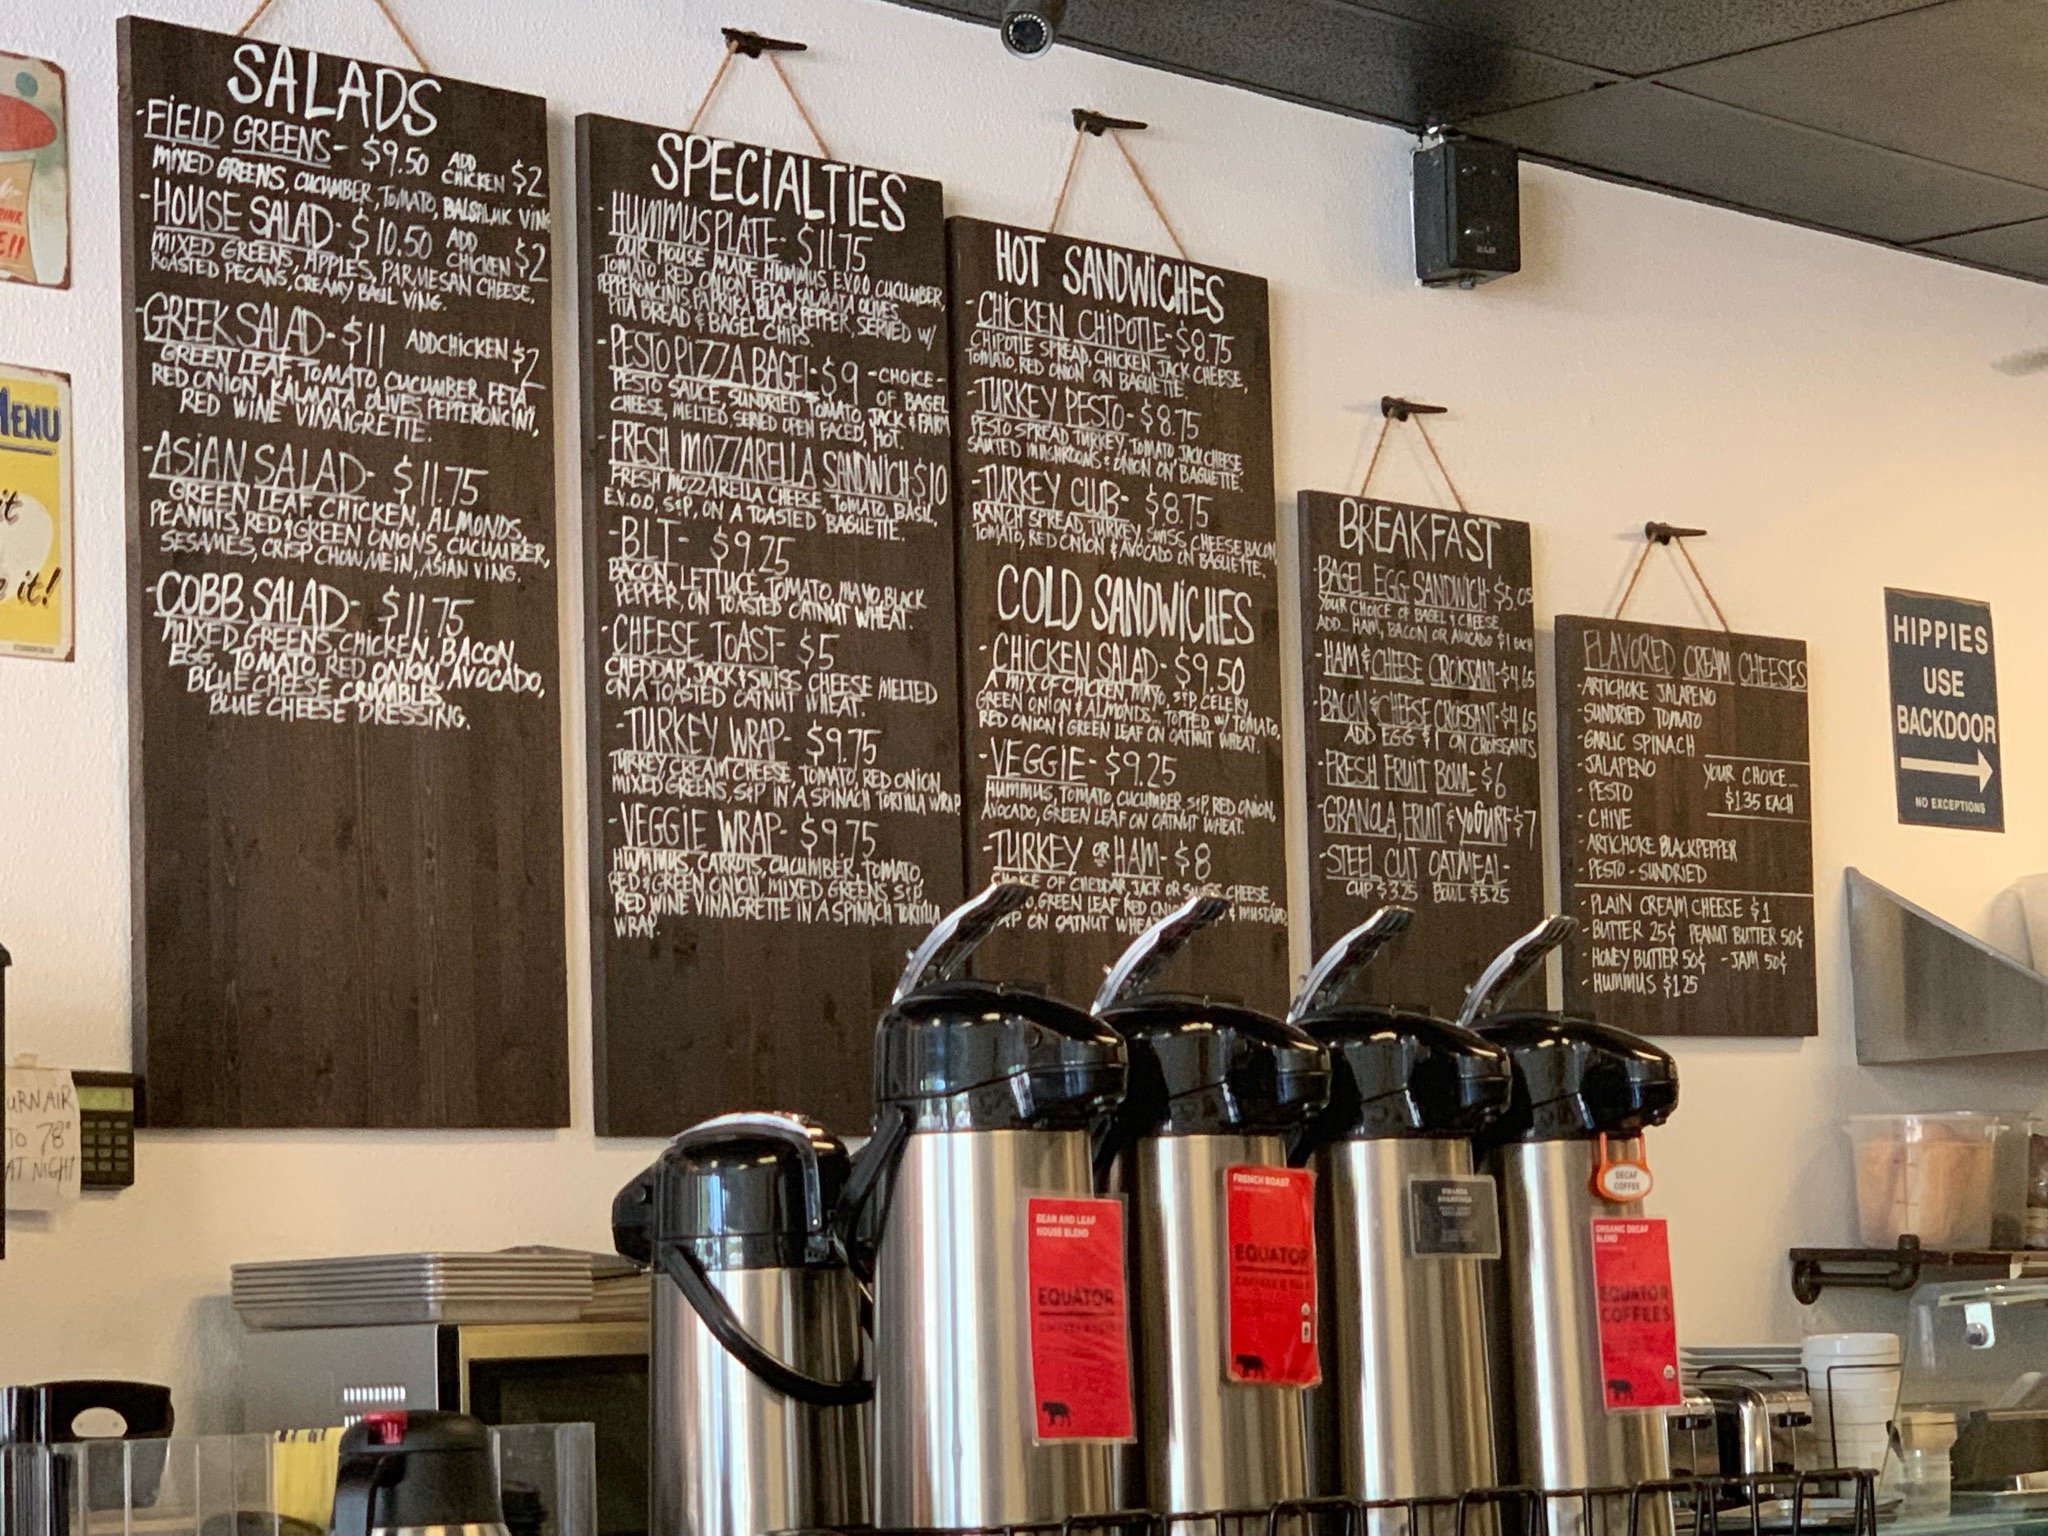 SALADS
-FIELD GREENS- $9.50 ADD CHICKEN $2
MIXED GREENS, CUCUMBER, TOMATO, BALSAMIC VIN
-HOUSE SALAD- $10.50 ADD CHICKEN $2
MIXED GREENS, APPLES, PARMESAN CHEESE,
ROASTED PECANS, CREAMY BASIL VING.
-GREEK SALAD- $11 ADD CHICKEN $2
GREEN LEAF TOMATO, CUCUMBER, FETA,
RED ONION, KALMATA OLIVES, PEPPERONCINI,
RED WINE VINAIGRETTE.
-ASIAN SALAD- $11.75
GREEN LEAF CHICKEN, ALMONDS,
PEANUTS, RED & GREEN ONIONS, CUCUMBER,
SESAMES, CRISP CHOW MEIN, ASIAN VING.
-COBB SALAD- $11.75
MIXED GREENS, CHICKEN, BACON,
EGG, TOMATO, RED ONION, AVOCADO,
BLUE CHEESE CRUMBLES,
BLUE CHEESE DRESSING.
SPECIALTIES
-HUMMUS PLATE- $11.75
OUR HOUSE MADE HUMMUS, E.V.O.O, CUCUMBER,
TOMATO, RED ONION FETA, KALMATA OLIVES,
PEPPERONCINIS, PAPRIKA, BLACK PEPPER, SERVED W/
PITA BREAD & BAGEL CHIPS.
-PESTO PIZZA BAGEL- $9 -CHOICE-
OF BAGEL
PESTO SAUCE, SUNDRIED TOMATO, JACK & PARM
CHEESE, MELTED, SERVED OPEN FACED, HOT.
-FRESH MOZZARELLA SANDWICH $10
FRESH MOZZARELLA CHEESE, TOMATO, BASIL,
E.V.O.O, S&P, ON A TOASTED BAGUETTE.
-BLT- $9.25
BACON, LETTUCE, TOMATO, MAYO, BLACK
PEPPER, ON TOASTED OATNUT WHEAT.
-CHEESE TOAST- $5
CHEDDAR, JACK & SWISS CHEESE MELTED
ON A TOASTED OATNUT WHEAT.
-TURKEY WRAP- $9.75
TURKEY, CREAM CHEESE, TOMATO, RED ONION,
MIXED GREENS, S&P IN A SPINACH TORTILLA WRAP.
-VEGGIE WRAP- $9.75
HUMMUS, CARROTS, CUCUMBER, TOMATO,
RED & GREEN ONION, MIXED GREENS, S&P,
RED WINE VINAIGRETTE IN A SPINACH TORTILLA
WRAP.
HOT SANDWICHES
-CHICKEN CHIPOTLE- $8.75
CHIPOTLE SPREAD, CHICKEN, JACK CHEESE,
TOMATO, RED ONION ON BAGUETTE.
-TURKEY PESTO- $8.75
PESTO SPREAD, TURKEY, TOMATO, JACK CHEESE,
SAUTED MUSHROOMS & ONION ON BAGUETTE.
-TURKEY CLUB- $8.75
RANCH SPREAD, TURKEY, SWISS CHEESE, BACON,
TOMATO, RED ONION & AVOCADO ON BAGUETTE.
COLD SANDWICHES
-CHICKEN SALAD- $9.50
A MIX OF CHICKEN, MAYO, S&P, CELERY,
GREEN ONION & ALMONDS... TOPPED W/ TOMATO,
RED ONION & GREEN LEAF ON OATNUT WHEAT.
-VEGGIE- $9.25
HUMMUS, TOMATO, CUCUMBER, S&P, RED ONION,
AVOCADO, GREEN LEAF ON OATNUT WHEAT.
-TURKEY OR HAM- $8
CHOICE OF CHEDDAR, JACK OR SWISS CHEESE,
GREEN LEAF RED & MUSTARD,
ON OATNUT WHEA
BREAKFAST
-BAGEL EGG SANDWICH- $5.05
YOUR CHOICE OF BAGEL & CHEESE,
ADD... HAM, BACON OR AVOCADO $1 EACH
-HAM & CHEESE CROISSANT- $4.65
-BACON & CHEESE CROISSANT- $4.65
ADD EGG $1 ON CROISSANTS
-FRESH FRUIT BOWL- $6
-GRANOLA, FRUIT & YOGURT- $7
-STEEL CUT OATMEAL-
CUP $3.25 BOWL $5.25
FLAVORED CREAM CHEESES
-ARTICHOKE JALAPENO
-SUNDRIED TOMATO
-GARLIC SPINACH
-JALAPENO
-PESTO
-CHIVE
-ARTICHOKE BLACKPEPPER
-PESTO-SUNDRIED
YOUR CHOICE...
$1.35 EACH
-PLAIN CREAM CHEESE $1
-BUTTER 25¢ PEANUT BUTTER 50¢
-HONEY BUTTER 50¢ -JAM 50¢
-HUMMUS $1.25
HIPPIES
USE
BACKDOOR
NO EXCEPTIONS
MENU
it
it!
URN AIR
TO 78°
AT NIGHT
BEAN AND LEAF
HOUSE BLEND
EQUATOR
FRENCH ROAST
EQUATOR
DECAF
COFFEE
ORGANIC DECAF
BLEND
EQUATOR
COFFEES